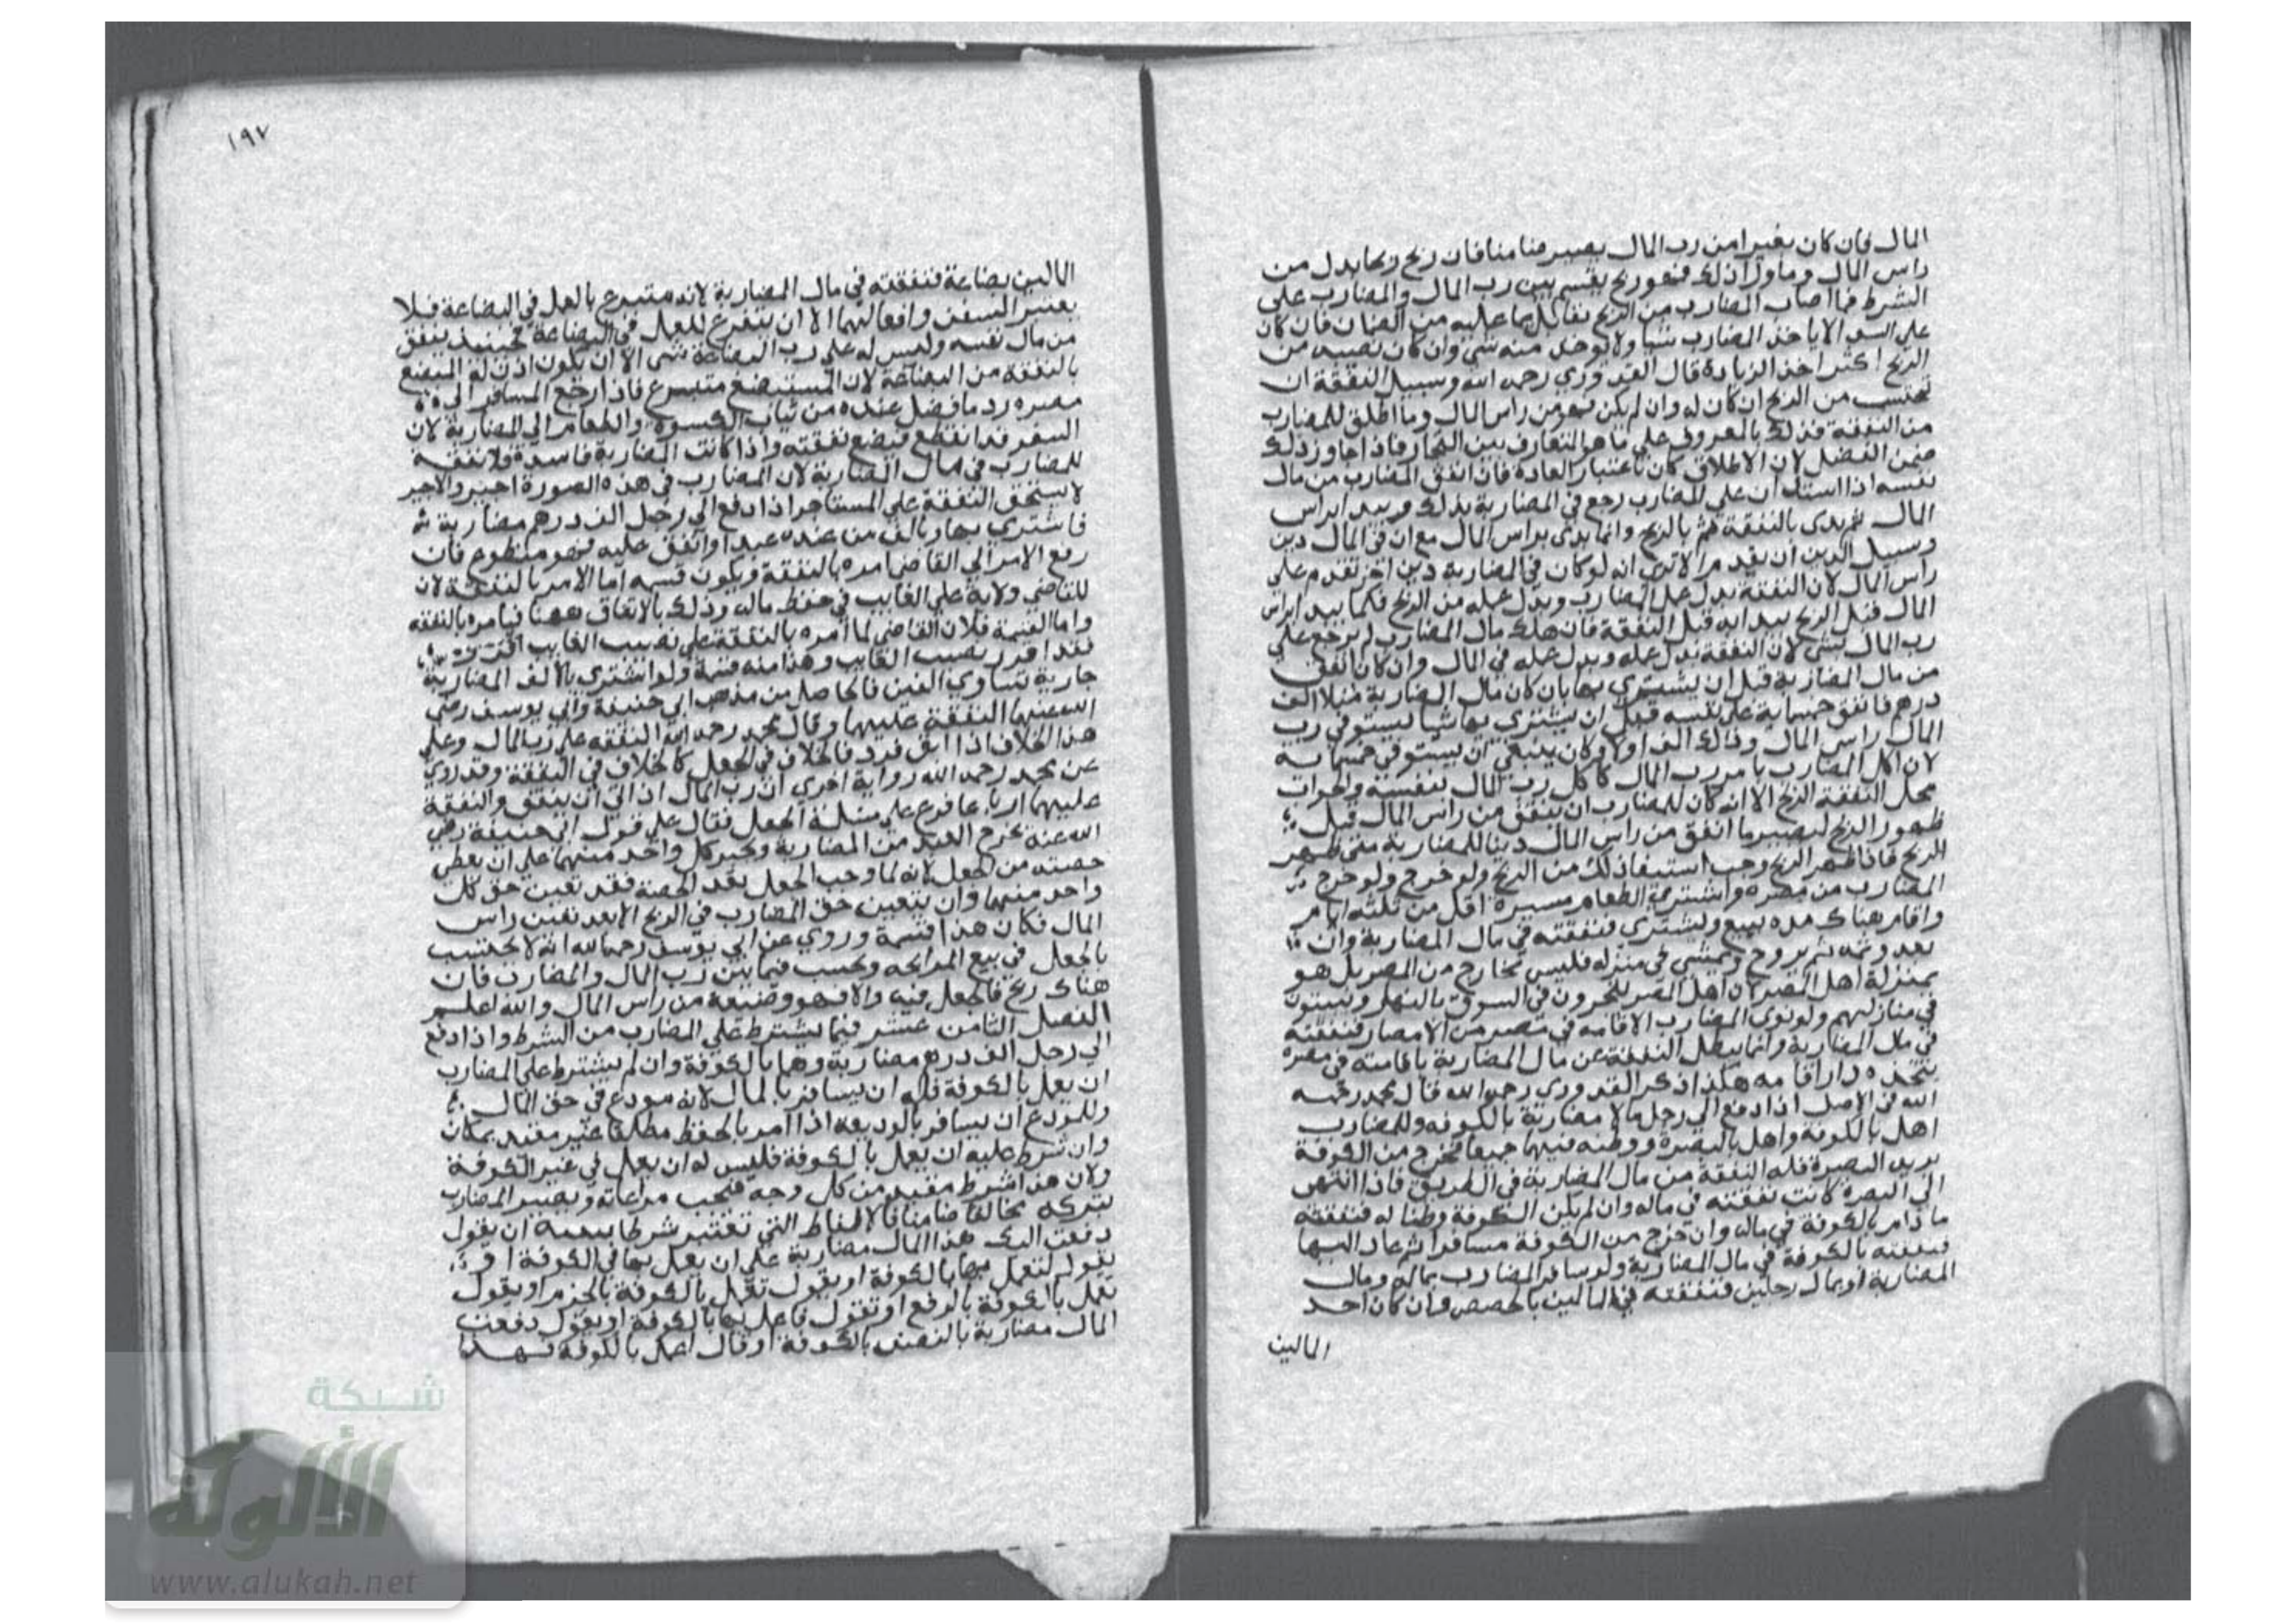 المال فان كان بغير امن رب المال يصير ضامنا فان ربح ربحا بدل من
راس المال وما ورا ذلك فهو ربح يقسم بين رب المال والمضارب على
الشرط فما اصاب المضارب من الربح تقابل بما عليه من الضمان فان كان
على السوا لا ياخذ المضارب شيا ولا يوخذ منه شي وان كان نصيبه من
الربح اكثر اخذ الزيادة قال القدوري رحمه الله وسبيل النفقة ان
تحتسب من الربح ان كان له وان لم يكن فهو من راس المال وما اطلق للمضارب
من النفقة فذلك بالمعروف على ما هو المتعارف بين التجار فاذا جاوز ذلك
ضمن الفضل لان الاطلاق كان باعتبار العادة فان انفق المضارب من مال
نفسه اذا استدان على المضارب رجع في المضاربة بذلك ويبدا براس
المال ثم بدى بالنفقة ثم بالربح وانما بدى براس المال مع ان في المال دين
وسبيل الدين ان يقدم الا ترى انه لو كان في المضاربة دين اخر تقدم على
راس المال لان النفقة بدل عمل المضارب وبدل عمله من الربح فكما يبدا براس
المال قبل الربح يبدا به قبل النفقة فان هلك مال المضارب لم يرجع على
رب المال بشي لان النفقة بدل عمله وبدل عمله في المال وان كان انفق
من مال المضاربة قبل ان يشتري بها بان كان مال المضاربة مثلا الف
درهم فانفق خمسماية على نفسه قبل ان يشتري بها شيا يستوفي رب
المال راس المال وذلك الف اولا وكان ينبغي ان يستوفي خمسماية
لان اكل المضارب بامر رب المال كاكل رب المال بنفسه والجواب
محل النفقة الربح الا انه كان للمضارب ان ينفق من راس المال قبل
ظهور الربح ليصير ما انفق من راس المال دينا للمضاربة متى ظهر
الربح فاذا ظهر الربح وجب استيفا ذلك من الربح ولو خرج ولو خرج
المضارب من مصره واشترى الطعام مسيرة اقل من ثلثة ايام
واقام هناك مده يبيع ويشترى فنفقته في مال المضاربة وان
يغدو ثم يروح ويمشي في منزله فليس بخارج من المصر بل هو
بمنزلة اهل المصر لان اهل المصر يتجرون في السوق بالنهار ويبيتون
في منازلهم ولو نوى المضارب الاقامه في مصر من الامصار فنفقته
في مال المضاربة وانما يبطل النفقة عن مال المضاربة باقامته في مصره
يتخذه دار اقامه هكذا ذكر القدوري رحمه الله قال محمد رحمه
الله في الاصل اذا دفع الى رجل مالا مضاربة بالكوفه وللمضارب
اهل بالكوفة واهل بالبصرة ووطنه فيهما جميعا فخرج من الكوفة
يريد البصرة فله النفقة من مال المضاربة في الطريق فاذا انتهى
الى البصرة كانت نفقته في ماله وان لم يكن الكوفة وطنا له فنفقته
ما دام بالكوفة في ماله وان خرج من الكوفة مسافرا ثم عاد اليها
فنفقته بالكوفة في مال المضاربة ولو سافر المضارب بماله ومال
المضاربة او بمال رجلين فنفقته في المالين بالحصص وان كان احد
المالين
١٩٧
المالين بضاعة فنفقته في مال المضاربة لانه متبرع بالعمل في البضاعة فلا
يعتبر السفر واقعا لهما الا ان يتفرغ للعمل في البضاعة فحينيذ ينفق
من مال نفسه وليس له على رب البضاعة شى الا ان يكون اذن له المبضع
بالنفقة من البضاعة لان المستبضع متبرع فاذا رجع المسافر الى
مصره رد ما فضل عنده من ثياب الكسوة والطعام الى المضاربة لان
السفر قد انقطع فيضع نفقته واذا كانت المضاربة فاسدة ولا نفقة
للمضارب في مال المضاربة لان المضارب في هذه الصورة اجير والاجير
لا يستحق النفقة على المستاجر اذا دفع الى رجل الف درهم مضاربة
فاشترى بها وبالف من عنده عبدا وانفق عليه فهو متطوع فان
رفع الامر الى القاضي امره بالنفقة ويكون قسمه اما الامر بالنفقة لان
للقاضي ولاية على الغايب في حفظ ماله وذلك بالانفاق ههنا فيامره بالنفقه
واما القسمة فلان القاضي لما امره بالنفقة على نصيب الغايب
فقد افرز نصيب الغايب وهذا منه قسمة ولو اشترى بالالف المضاربة
جارية تساوي الفين فالحاصل من مذهب ابي حنيفة وابي يوسف رضى
الله عنهما النفقة عليهما وقال محمد رحمه الله النفقه على رب المال وعلى
هذا الخلاف اذا ابق فرد فالخلاف في الجعل كالخلاف في النفقة وقد روي
عن محمد رحمه الله رواية اخري ان رب المال اذا ابى ان ينفق والنفقة
عليهما ارباعا فرع على مسئلة الجعل فقال على قول ابي حنيفة رضى
الله عنه يخرج العبد من المضاربة ويجبر كل واحد منهما على ان يعطى
حصته من الجعل لانه لما وجب الجعل بقدر الحصة فقد تعين حق كل
واحد منهما وان يتعين حق المضارب في الربح الا بعد تعين راس
المال فكان هذا قسمة وروي عن ابي يوسف رحمه الله انه لا يحتسب
بالجعل في بيع المرابحه ويحسب فيما بين رب المال والمضارب فان
هناك ربح فالجعل فيه والا فهو وضيعة من راس المال والله اعلم
الفصل الثامن عشر فيما يشترط على المضارب من الشرط واذا دفع
الى رجل الف درهم مضاربة وهما بالكوفة وان لم يشترط على المضارب
ان يعمل بالكوفة فله ان يسافر بالمال لانه مودع في حق المال
وللمودع ان يسافر بالوديعه اذا امر بالحفظ مطلقا غير مقيد بمكان
وان شرط عليه ان يعمل بالكوفة فليس له ان يعمل في غير الكوفة
ولان هذا شرط مفيد من كل وجه فيجب مراعاته ويصير المضارب
بتركه مخالفا ضامنا فالالفاظ التي تعتبر شرطا بيمية ان يقول
دفعت اليك هذا المال مضاربة على ان يعمل بها في الكوفة او
يقول لتعمل بها بالكوفة او يقول تعمل بالكوفة بالجزم او يقول
تعمل بالكوفة بالرفع او تقول فاعمل بها بالكوفة او يقول دفعت
المال مضاربة بالنصف بالكوفة او قال اعمل بالكوفة فهذا
شبكة
الألوكة
www.alukah.net